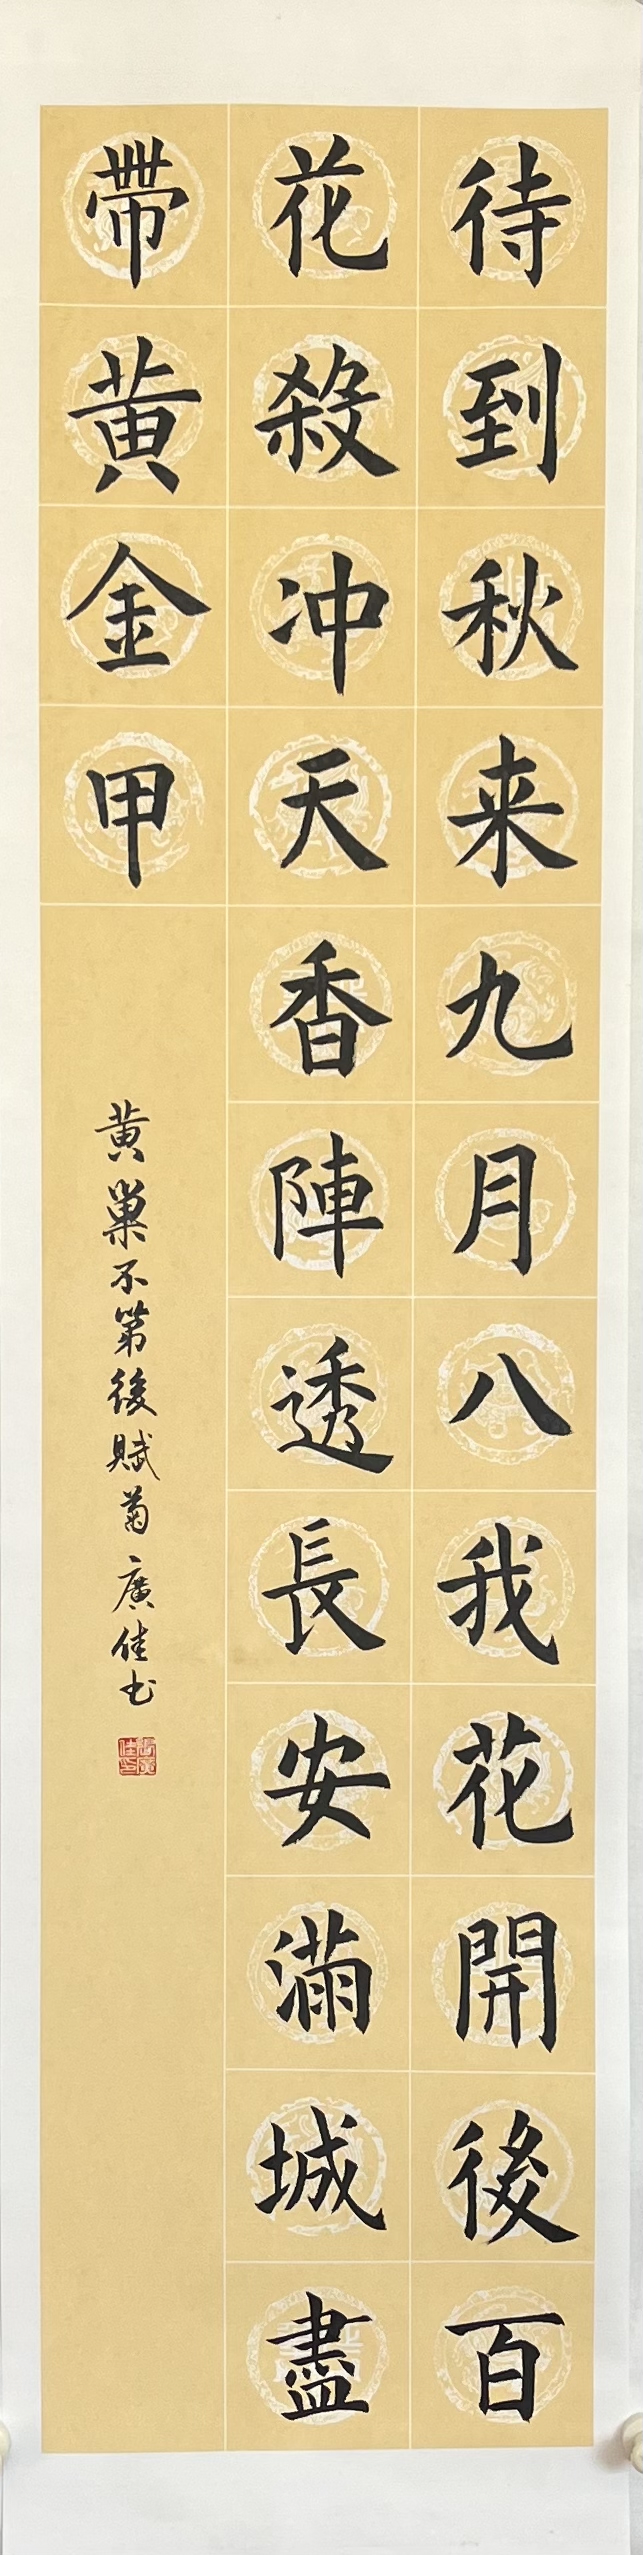 待到秋来九月八我花開後百
花殺冲天香陣透長安滿城盡
帶黄金甲
黄巢不第後賦菊廣佳书